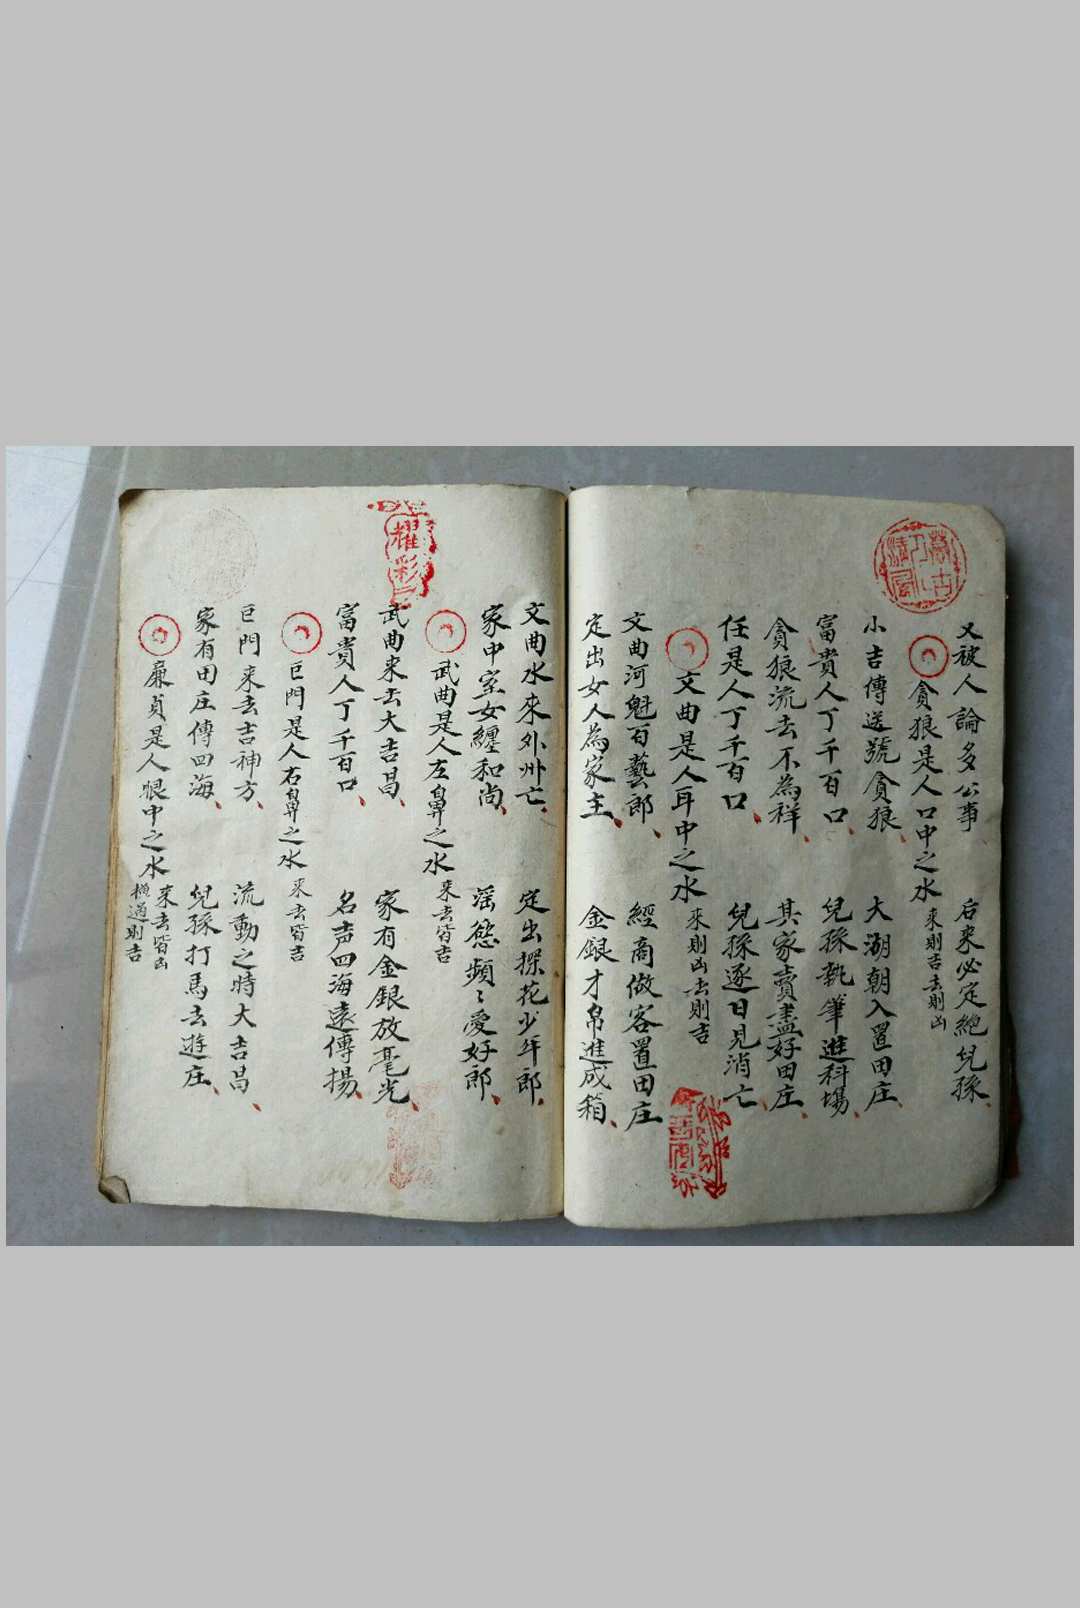 又被人論多公事 后来必定絕兒孫
貪狼是人口中之水 來則吉去則凶
小吉傳送號貪狼 大湖朝入置田庄
富貴人丁千百口 兒孫執筆進科場
貪狼流去不為祥 其家賣盡好田庄
任是人丁千百口 兒孫逐日見消亡
文曲是人耳中之水 來則凶去則吉
文曲河魁百藝郎 經商做客置田庄
定出女人為家主 金銀才帛進成箱
文曲水來外州亡 定出探花少年郎
家中室女纏和尚 淫慾頻〻愛好郎
武曲是人左鼻之水 来去皆吉
武曲来去大吉昌 家有金銀放毫光
富貴人丁千百口 名声四海遠傳揚
巨門是人右鼻之水 来去皆吉
巨門来去吉神方 流動之時大吉昌
家有田庄傳四海 兒孫打馬去遊庄
廉貞是人眼中之水 来去皆凶
橫過則吉
耀彩